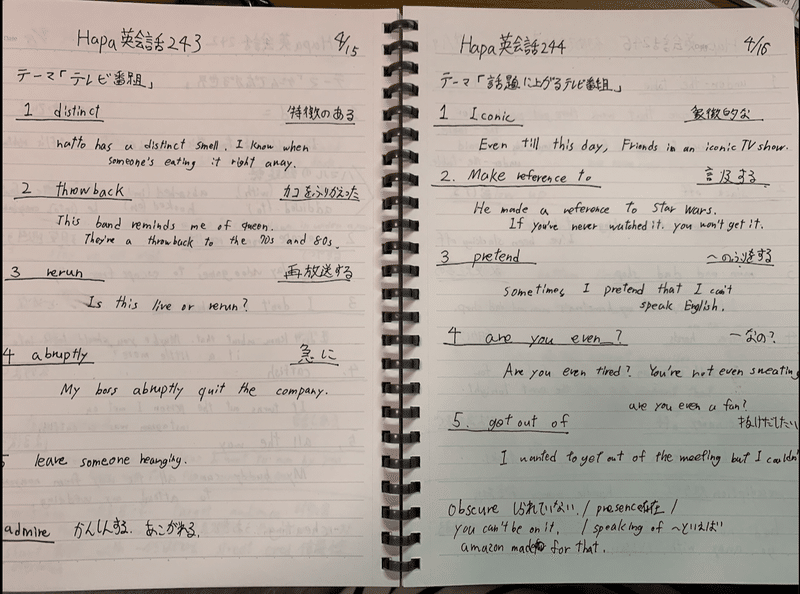 Hapa英会話243 4/15
テーマ「テレビ番組」
1 distinct 特徴のある
natto has a distinct smell. I know when
someone's eating it right away.
2 throwback カコをふりかえった
This band reminds me of queen.
They're a throwback to the 70s and 80s.
3 rerun 再放送する
Is this live or rerun?
4 abruptly 急に
My boss abruptly quit the company.
5 leave someone heanging.
admire かんしんする。あこがれる。
Hapa英会話244 4/16
テーマ「話題に上がるテレビ番組」
1 Iconic 象徴的な
Even till this day, Friends in an iconic TV show.
2. Make reference to 言及する
He made a reference to Star Wars.
If you've never watched it. you won't get it.
3 pretend 〜のふりをする
sometimes I pretend that I can't
speak English.
4 are you even ? 一体なの？
Are you even tired? You're not even sweating
are you even a fan?
5. get out of 抜けだしたい
I wanted to get out of the meeting but I couldn
obscure しられていない / presence存在 /
you can't be on it. / speaking of 〜といえば
amazon made for that.